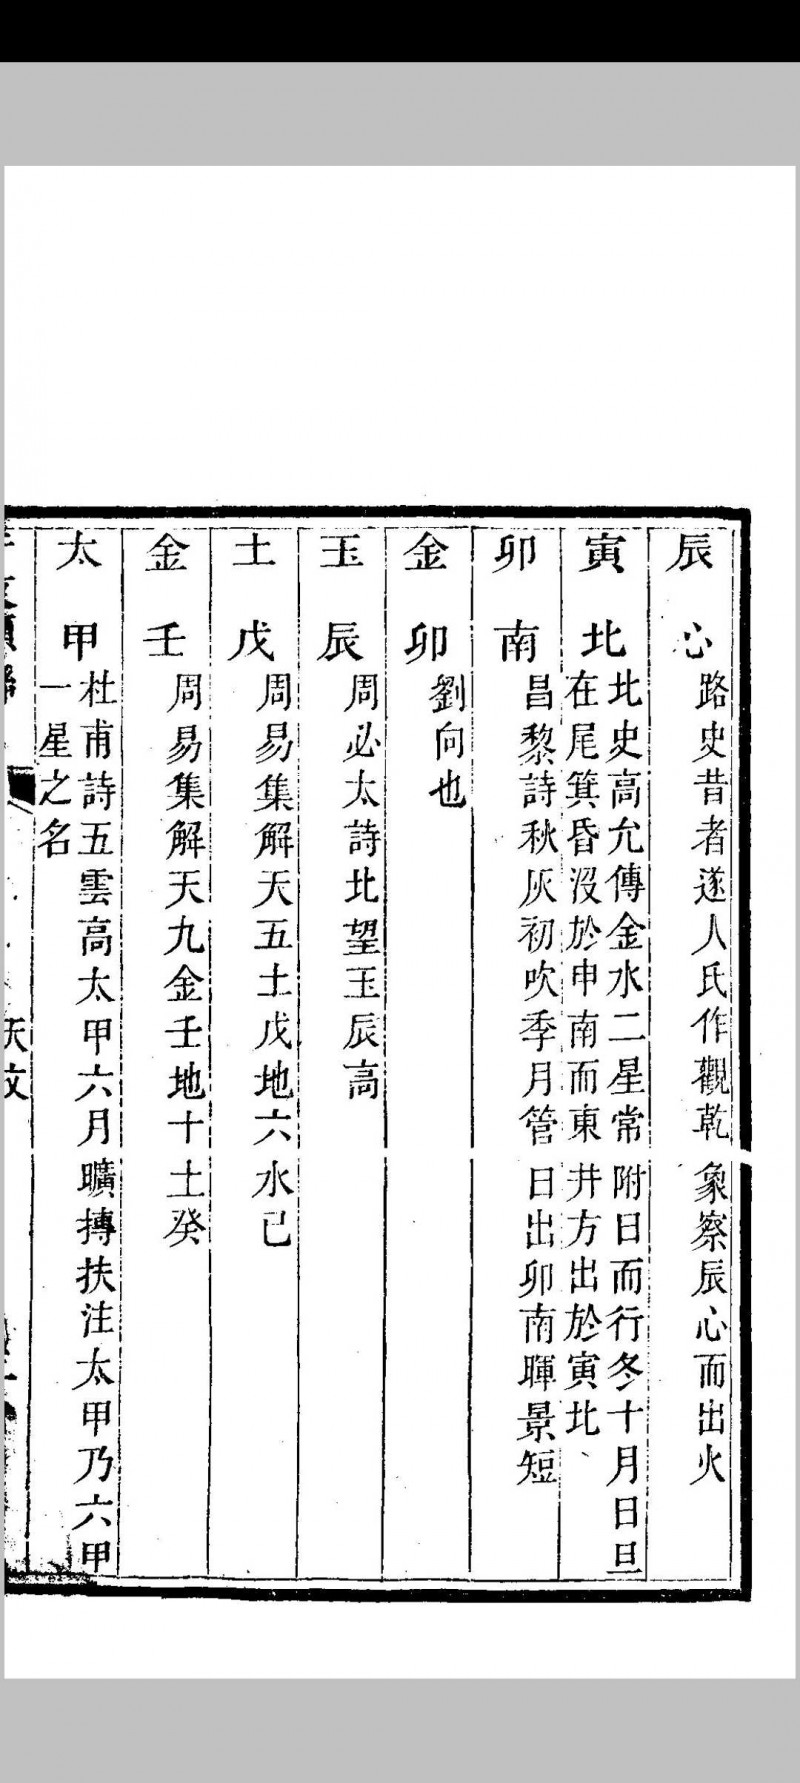 辰心
路史昔者遂人氏作觀乾象察辰心而出火
寅北
北史高允傳金水二星常附日而行冬十月日旦
在尾箕昏沒於申南而東井方出於寅北
卯南
昌黎詩秋灰初吹季月管日出卯南暉景短
金卯
劉向也
玉辰
周必太詩北望玉辰高
土戊
周易集解天五土戊地六水己
金壬
周易集解天九金壬地十土癸
太甲
杜甫詩五雲高太甲六月曠摶扶注太甲乃六甲
一星之名
天文